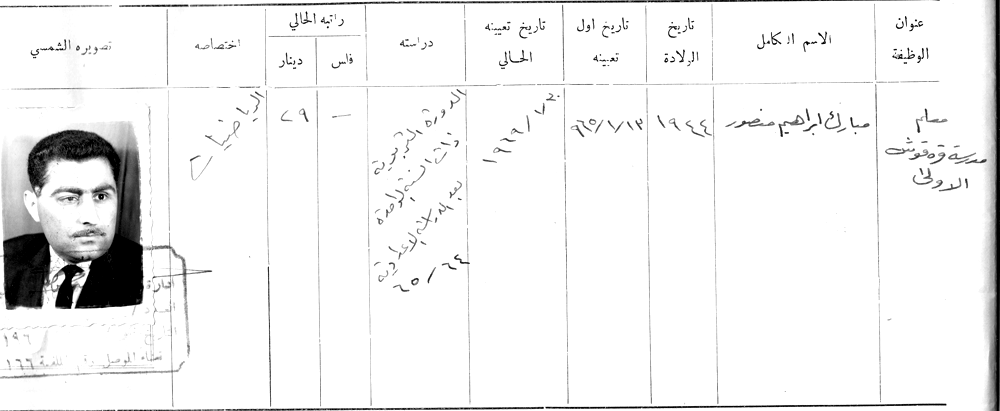 عنوان
الوظيفة
الاسم الكامل
تاريخ
الولادة
تاريخ اول
تعيينه
تاريخ تعيينه
الحالي
دراسته
راتبه الحالي
فلس
دينار
اختصاصه
تصويره الشمسي
معلم
مدرسة قره قوش
الاولى
مبارك ابراهيم منصور
١٩٤٤
٩٦٥/١/١٣
الدورة التربوية
ذات السنة الواحدة
بعد الدراسة الاعدادية
٦٥/٦٤
—
٢٩
الرياضيات
١٩٦
١٦٦